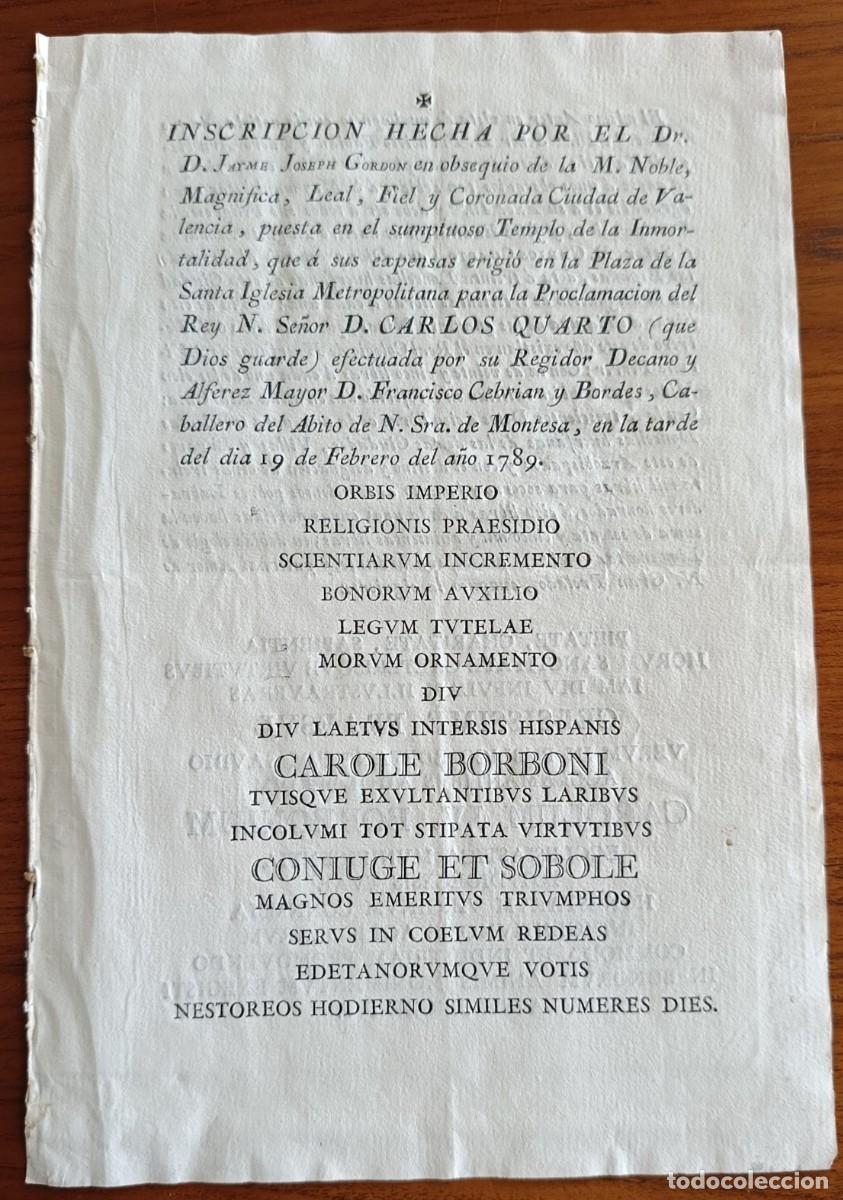 ✠
INSCRIPCION HECHA POR EL Dr.
D. JAYME JOSEPH GORDON en obsequio de la M. Noble,
Magnifica, Leal, Fiel y Coronada Ciudad de Va-
lencia, puesta en el sumptuoso Templo de la Inmor-
talidad, que á sus expensas erigió en la Plaza de la
Santa Iglesia Metropolitana para la Proclamacion del
Rey N. Señor D. CARLOS QUARTO (que
Dios guarde) efectuada por su Regidor Decano y
Alferez Mayor D. Francisco Cebrian y Bordes, Ca-
ballero del Abito de N. Sra. de Montesa, en la tarde
del dia 19 de Febrero del año 1789.
ORBIS IMPERIO
RELIGIONIS PRAESIDIO
SCIENTIARVM INCREMENTO
BONORVM AVXILIO
LEGVM TVTELAE
MORVM ORNAMENTO
DIV
DIV LAETVS INTERSIS HISPANIS
CAROLE BORBONI
TVISQVE EXVLTANTIBVS LARIBVS
INCOLVMI TOT STIPATA VIRTVTIBVS
CONIUGE ET SOBOLE
MAGNOS EMERITVS TRIVMPHOS
SERVS IN COELVM REDEAS
EDETANORVMQVE VOTIS
NESTOREOS HODIERNO SIMILES NUMERES DIES.
todocoleccion